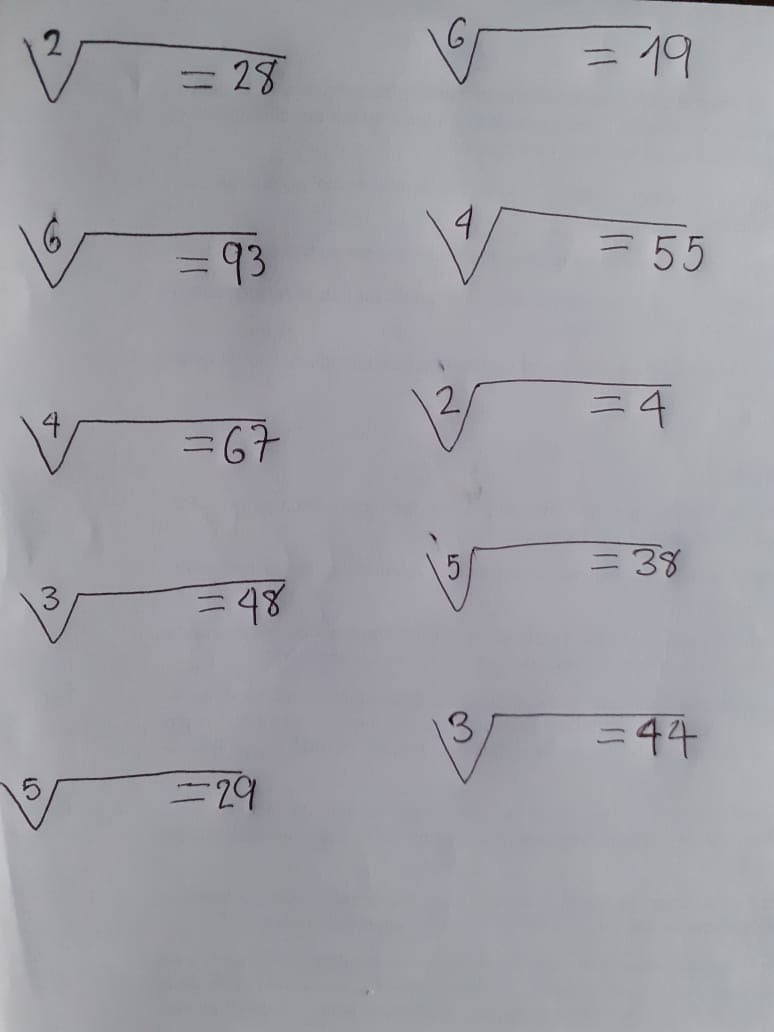 ²√ = 28
⁶√ = 93
⁴√ = 67
³√ = 48
⁵√ = 29
⁶√ = 19
⁴√ = 55
²√ = 4
⁵√ = 38
³√ = 44